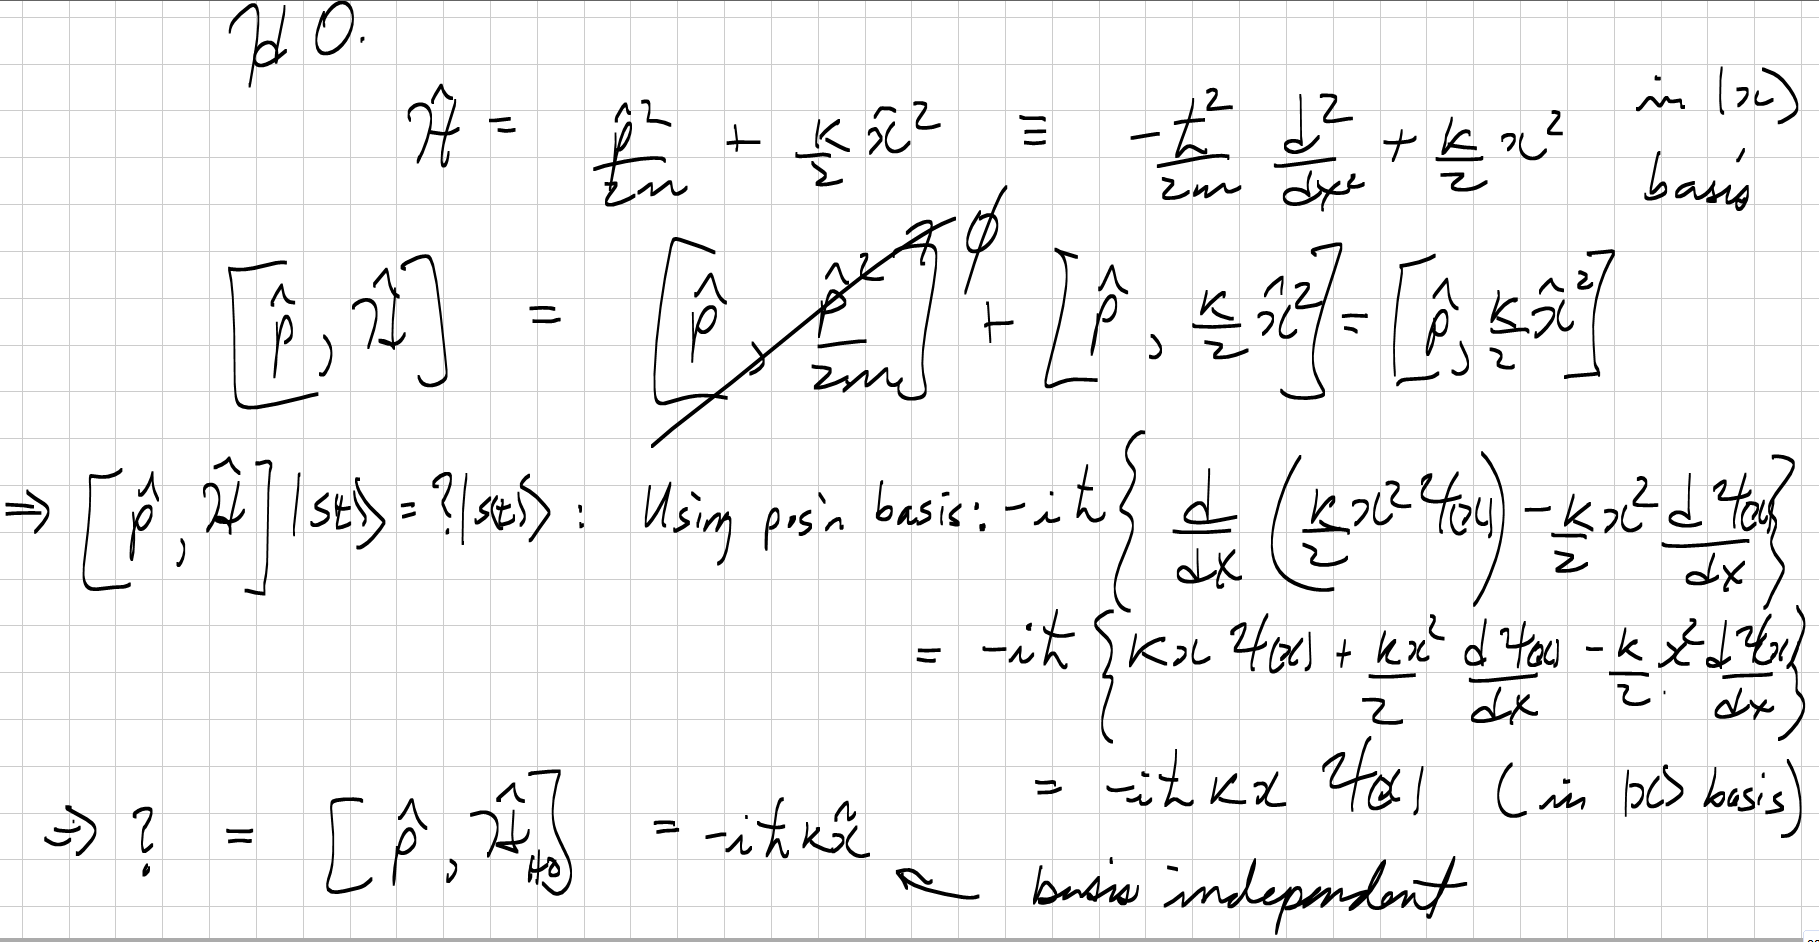 1d O.
Ĥ = p̂²/2m + k/2 x̂² ≡ -ħ²/2m d²/dx² + k/2 x² in |x⟩ basis
[p̂, Ĥ] = [p̂, p̂²/2m] 0 + [p̂, k/2 x̂²] = [p̂, k/2 x̂²]
⇒ [p̂, Ĥ] |s(t)⟩ = ? |s(t)⟩ : Using pos'n basis: -iħ { d/dx ( k/2 x² Ψ(x) ) - k/2 x² dΨ(x)/dx }
= -iħ { kx Ψ(x) + kx²/2 dΨ(x)/dx - k/2 x² dΨ(x)/dx }
= -iħ kx Ψ(x) (in |x⟩ basis)
⇒ ? = [p̂, Ĥ_HO] = -iħkx̂
basis independent